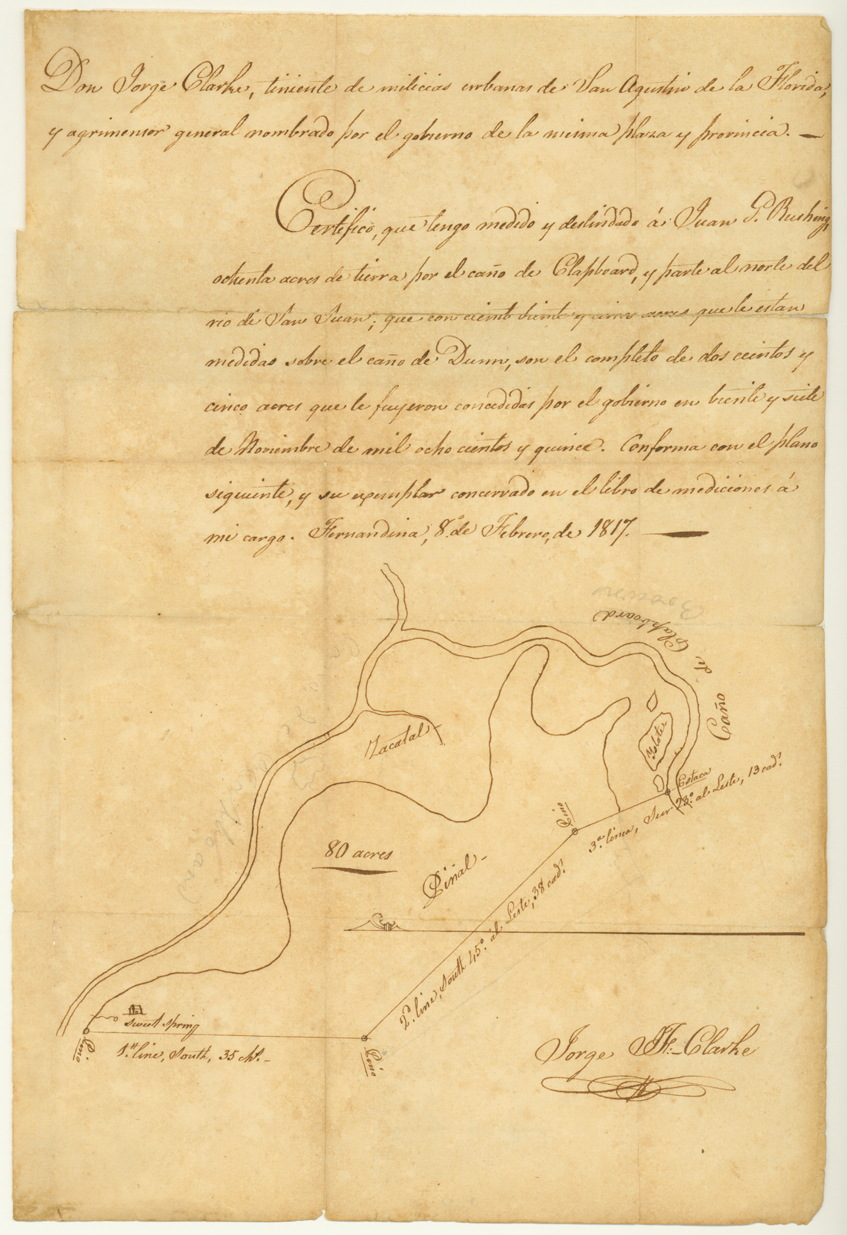 Don Jorge Clarke, teniente de milicias urbanas de San Agustin de la Florida,
y agrimensor general nombrado por el gobierno de la misma plaza y provincia. —
Certifico, que tengo medido y deslindado á Juan G. Rushing
ochenta acres de tierra por el caño de Clapboard, y parte al norte del
rio de San Juan; que con ciento viente y cinco acres que le estan
medidas sobre el caño de Dunn, son el completo de dos cientos y
cinco acres que le fuyeron concedidas por el gobierno en viente y siete
de Noviembre de mil ocho cientos y quince. Conforma con el plano
siguiente, y su exemplar concervado en el libro de mediciones á
mi cargo. Fernandina, 8.º de Febrero, de 1817. —
Caño de Clapboard
Zacatal
Islote
Estaca
3.ª linea, Sur 22º al Leste, 13 cad.ˢ
Pino
80 acres
Pinal
2.ª line, South 45º al Leste, 38 cad.ˢ
sweet spring
Pino
1.st line, South, 35 chs.
Pino
Jorge J. F. Clarke